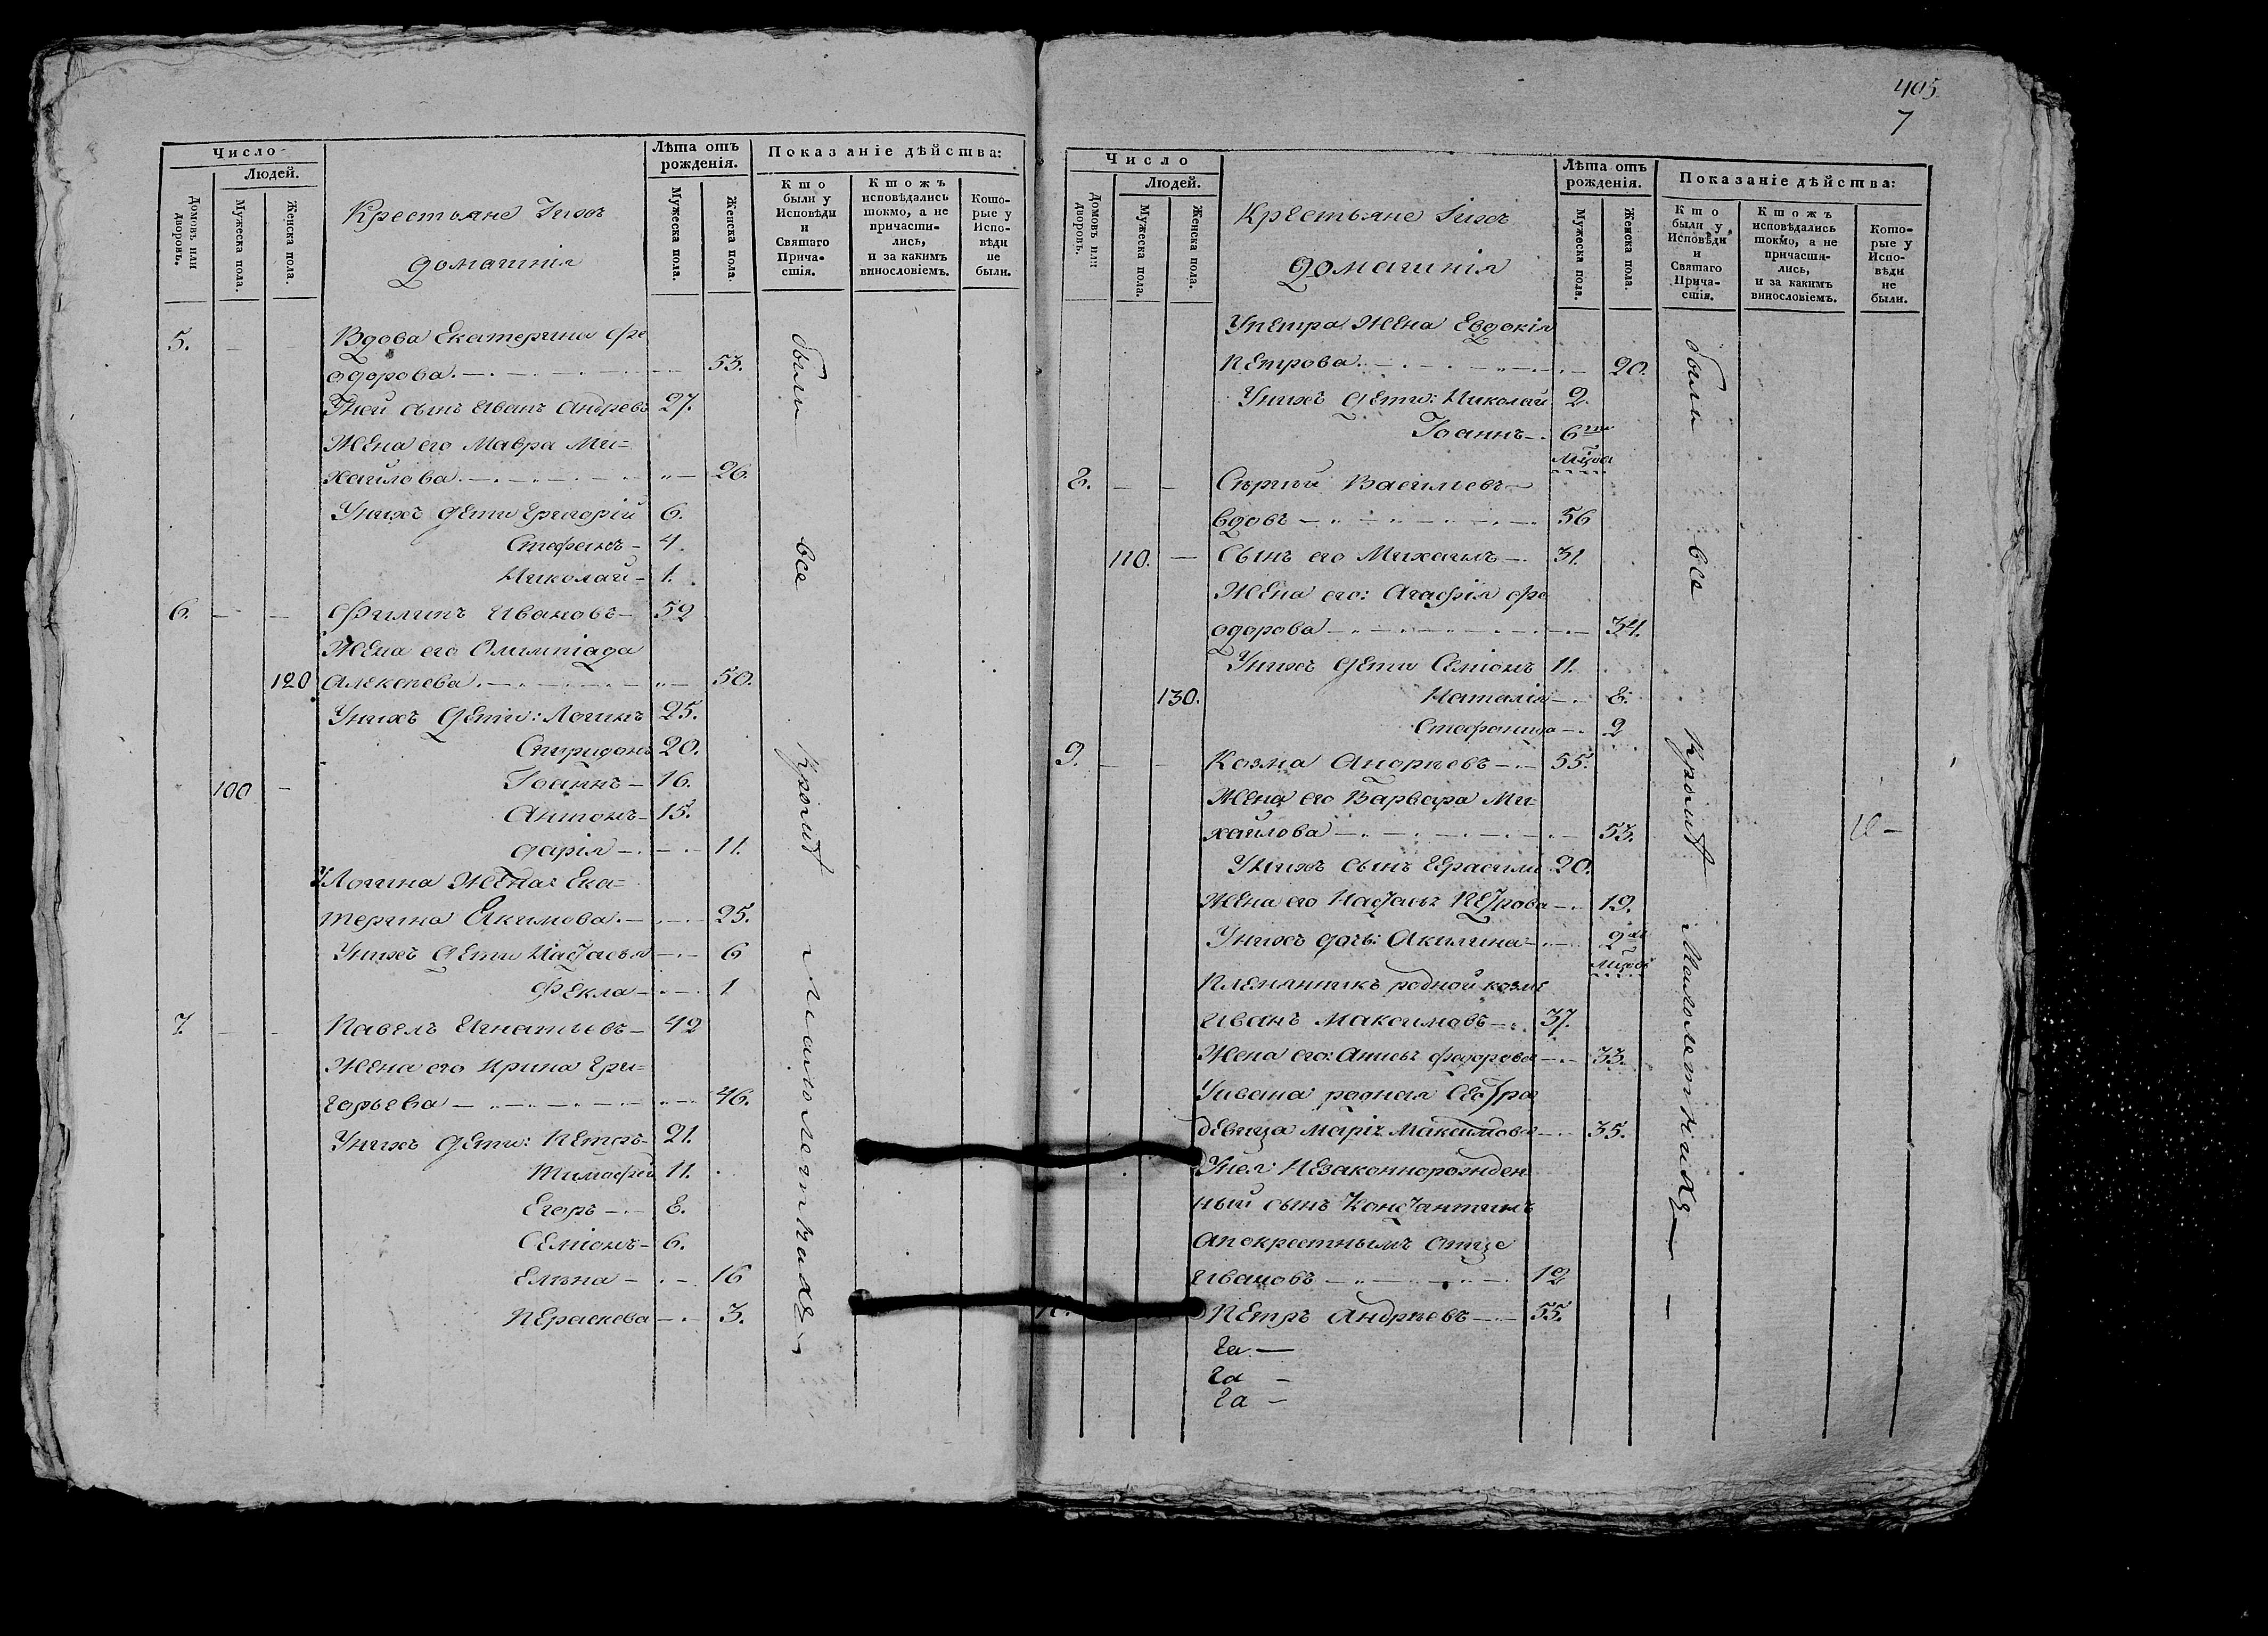 Число
Людей.
Домовъ или дворовъ.
Мужеска пола.
Женска пола.
Крестьяне Iихъ
домашнія
Лѣта отъ рожденія.
Мужеска пола.
Женска пола.
Показаніе дѣйства:
Кто были у Исповѣди и Святаго Причастія.
Ктожъ исповѣдались токмо, а не причастились, и за какимъ винословіемъ.
Которые у Исповѣди не были.
5. — — Вдова Екатерина Фе
одорова. — 53.
Уней сынъ Иванъ Андреевъ 27.
Жена его Мавра Ми=
хайлова. — 26.
Унихъ дети Григорій 6.
Стефанъ — 4.
Николай — 1.
6. — — Филипъ Ивановъ — 52
Жена его Олимпіада
120 Алексеева. — 50.
Унихъ дети: Логинъ 25.
Спиридонъ 20.
100 — Іоаннъ — 16.
Антонъ — 15.
дарія — 11.
Улогина жена: Ека=
терина Якимова. — 25.
Унихъ дети Настасья — 6
Фекла — 1
7. — — Павелъ Игнатьевъ — 42
Жена его Ирина Гри=
горьева — 46.
Унихъ дети: Петръ — 21.
Тимофей 11.
Егоръ — 8.
Семіонъ — 6.
Елена — 16
Пераскева — 3.
были все кромѣ малолетныхъ
405.
7
Число
Людей.
Домовъ или дворовъ.
Мужеска пола.
Женска пола.
Крестьяне Iихъ
домашнія
Лѣта отъ рожденія.
Мужеска пола.
Женска пола.
Показаніе дѣйства:
Кто были у Исповѣди и Святаго Причастія.
Ктожъ исповѣдались токмо, а не причастились, и за какимъ винословіемъ.
Которые у Исповѣди не были.
Упетра жена Евдокія
Петрова. — 20.
Унихъ дети: Николай 2.
Іоаннъ — 6ти
мцов
8. — — Сергий Васильевъ —
вдовъ — 56
110. — Сынъ его Михаилъ — 31.
Жена его: Агафія Фе
одорова — 34.
Унихъ дети Семіонъ 11.
130. Наталія — 8.
Стефанида — 2
9. — — Козма Андреевъ — 55.
Жена его Варвара Ми=
хайлова — 53.
Унихъ сынъ Герасимъ 20.
Жена его Настасья Петрова — 19.
Унихъ дочь: Акилина — 2хъ
мцовъ
Племянникъ родной козмѣ
Иванъ Максимовъ — 37.
Жена его: Анна Федорова — 33.
Уивана родная сестра
девица Марія Максимова — 35.
Унея Незаконнорожден
ный сынъ Константинъ
апокрестнымъ отце
Ивановъ — 12
Петръ Андреевъ — 55.
были все кромѣ малолетныхъ —